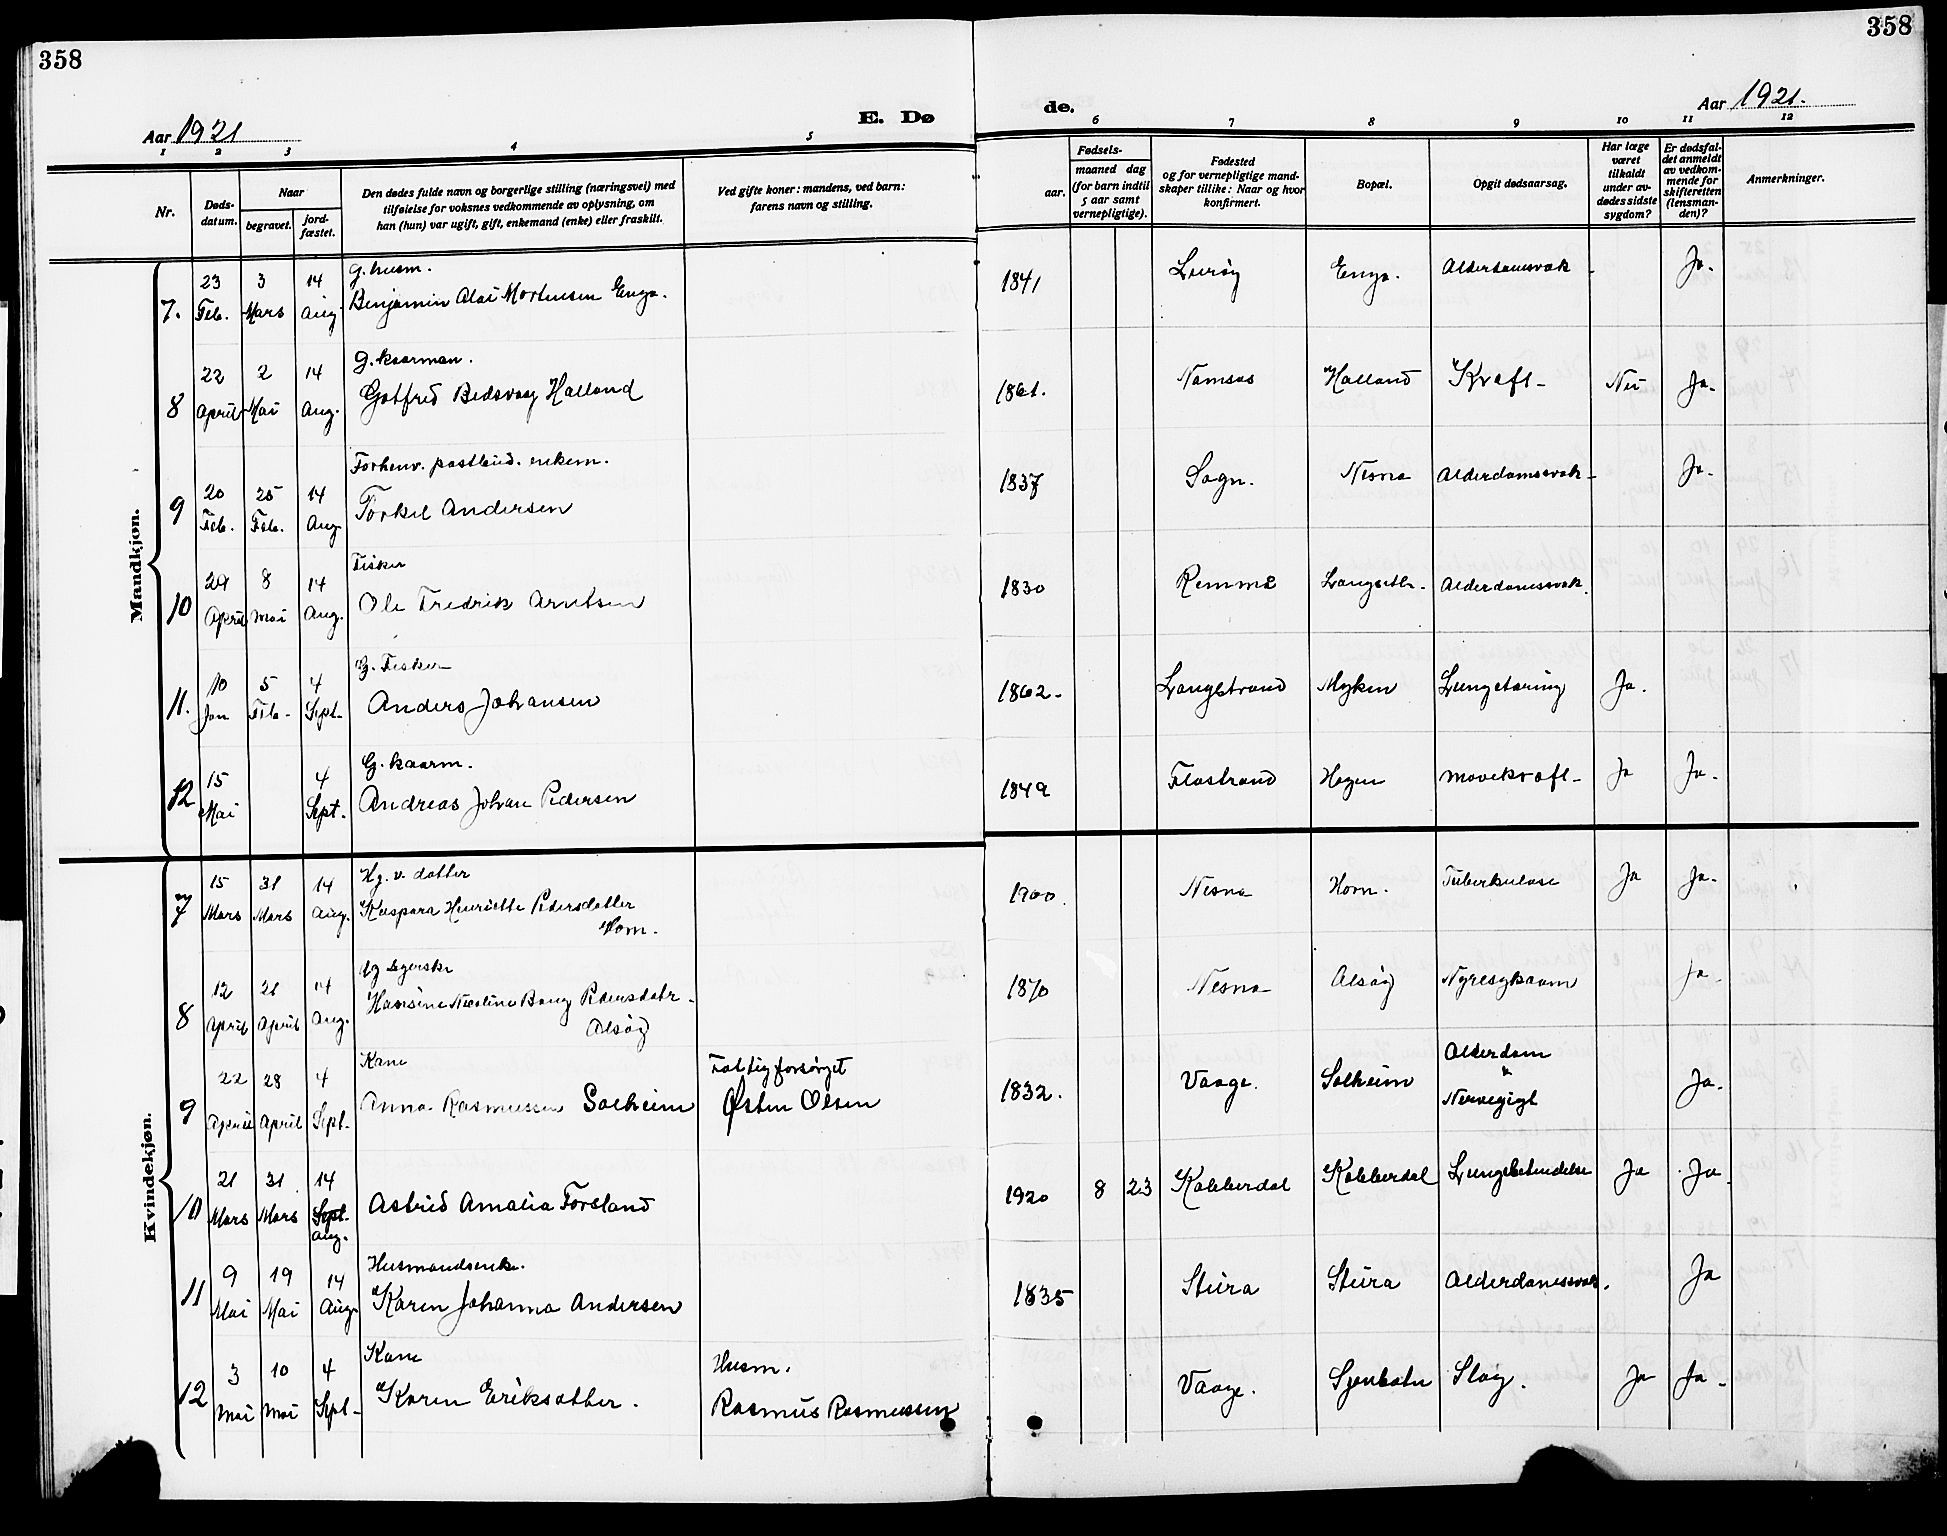 358
358
Aar 1921
E. Dø
de.
Aar 1921.
1 2 3 4 5 6 7 8 9 10 11 12
Nr.
Døds-
datum.
Naar
begravet.
jord-
fæstet.
Den dødes fulde navn og borgerlige stilling (næringsvei) med
tilføielse for voksnes vedkommende av oplysning, om
han (hun) var ugift, gift, enkemand (enke) eller fraskilt.
Ved gifte koner: mandens, ved barn:
farens navn og stilling.
Fødsels-
aar.
maaned dag
(for barn indtil
5 aar samt
vernepligtige).
Fødested
og for vernepligtige mand-
skaper tillike: Naar og hvor
konfirmert.
Bopæl.
Opgit dødsaarsag.
Har læge
været
tilkaldt
under av-
dødes sidste
sygdom?
Er dødsfal-
det anmeldt
av vedkom-
mende for
skifteretten
(lensman-
den)?
Anmerkninger.
Mandkjøn.
g. husm.
7. 23 Feb. 3 Mars 14 Aug. Benjamin Mortensen Enga. 1841 Lurøy Enga. Alderdomsvak Ja.
g. kaarman.
8 22 April 2 Mai 14 Aug. Gotfred Bedsvaag Halland 1861. Namsos Halland Kræft Nei Ja.
Forhenv. postbud. enkem.
9 20 Feb. 25 Feb. 14 Aug. Torkel Andersen 1837 Sogn. Nesna Alderdomssvak Ja.
Fisker
10 24 April 8 Mai 14 Aug. Ole Fredrik Arntsen 1830 Remma Langseth. Alderdomssvak.
G. Fisker
11. 10 Jan 5 Feb. 4 Sept. Anders Johansen 1862. Langstrand Myken Lungetæring Ja.
G. kaarm.
12 15 Mai 4 Sept. Andreas Johan Pedersen 1849 Flostrand Hagen Mavekræft Ja Ja.
Kvindekjøn.
Ug. v. datter
7 15 Mars 31 Mars 14 Aug. Kaspara Henriette Pedersdatter
Hom. 1900. Nesna Hom. Tuberkulose Ja Ja.
Ug
8 12 April 21 April 14 Aug. Hansine Nicoline Bang Pedersdatr.
Alsøy 1870 Nesna Alsøy Nyresykdom Ja.
Kone Fattigforsørget
9 22 April 28 April 4 Sept. Anna Rasmussen Solheim Østen Olsen 1832. Vaage. Solheim Alderdom
& Nervegigt Ja.
10 21 Mars 31 Mars 14 Sept. Aug. Astrid Amalia Forsland 1920 8 23 Kobberdal Kobberdal Lungebetendelse Ja Ja.
Husmandsenke.
11 9 Mai 19 Mai 14 Aug. Karen Johanna Andersen 1835 Stura Stura Alderdomssvak. Ja
Kone Husm.
12 3 Mai 10 Mai 4 Sept. Karen Eriksatter. Rasmus Rasmussen Vaage. Sjonbotn Slag. Ja Ja.